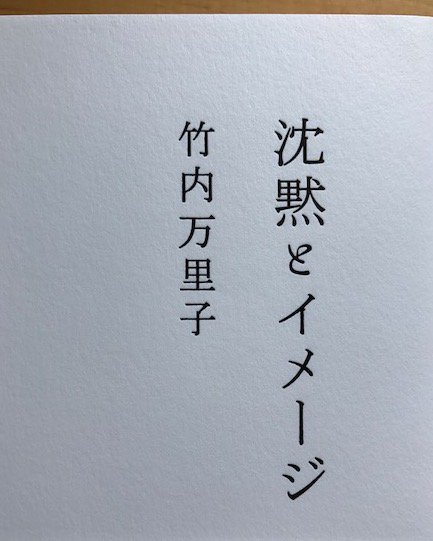 沈黙とイメージ
竹内万里子